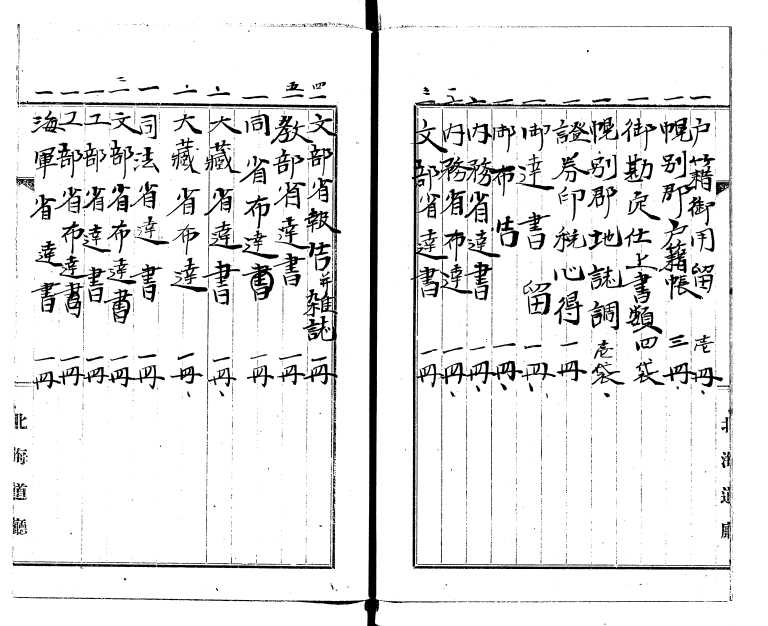 一 戸籍御用留 壱冊、
一 幌別郡戸籍帳 三冊、
一 御勘定仕上書類 四袋
一 幌別郡地誌調 壱袋、
一 證券印税心得 一冊
一 御達書留 一冊、
一 御布告 一冊、
一 内務省達書 一冊、
一 内務省布達 一冊、
一 文部省達書 一冊、
北海道廳
四 一 文部省報告并雑誌 一冊
五 教部省達書 一冊
一 同省布達書 一冊
一 大蔵省達書 一冊、
一 大藏省布達 一冊、
一 司法省達書 一冊
二 文部省布達書 一冊
一 工部省達書 一冊
一 工部省布達書 一冊
一 海軍省達書 一冊
北海道廳